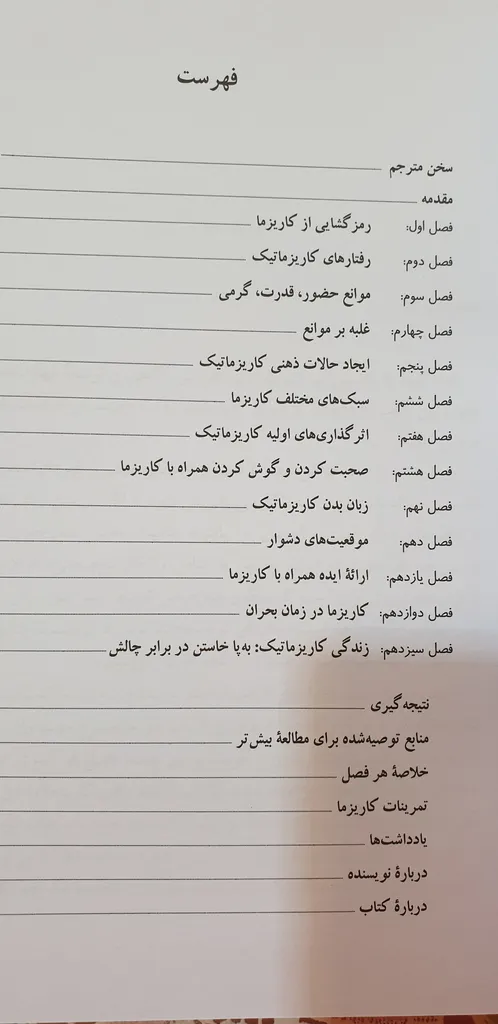 فهرست
سخن مترجم
مقدمه
فصل اول: رمزگشایی از کاریزما
فصل دوم: رفتارهای کاریزماتیک
فصل سوم: موانع حضور، قدرت، گرمی
فصل چهارم: غلبه بر موانع
فصل پنجم: ایجاد حالات ذهنی کاریزماتیک
فصل ششم: سبک‌های مختلف کاریزما
فصل هفتم: اثرگذاری‌های اولیه کاریزماتیک
فصل هشتم: صحبت کردن و گوش کردن همراه با کاریزما
فصل نهم: زبان بدن کاریزماتیک
فصل دهم: موقعیت‌های دشوار
فصل یازدهم: ارائهٔ ایده همراه با کاریزما
فصل دوازدهم: کاریزما در زمان بحران
فصل سیزدهم: زندگی کاریزماتیک: به‌پا خاستن در برابر چالش
نتیجه‌گیری
منابع توصیه‌شده برای مطالعهٔ بیش‌تر
خلاصهٔ هر فصل
تمرینات کاریزما
یادداشت‌ها
دربارهٔ نویسنده
دربارهٔ کتاب